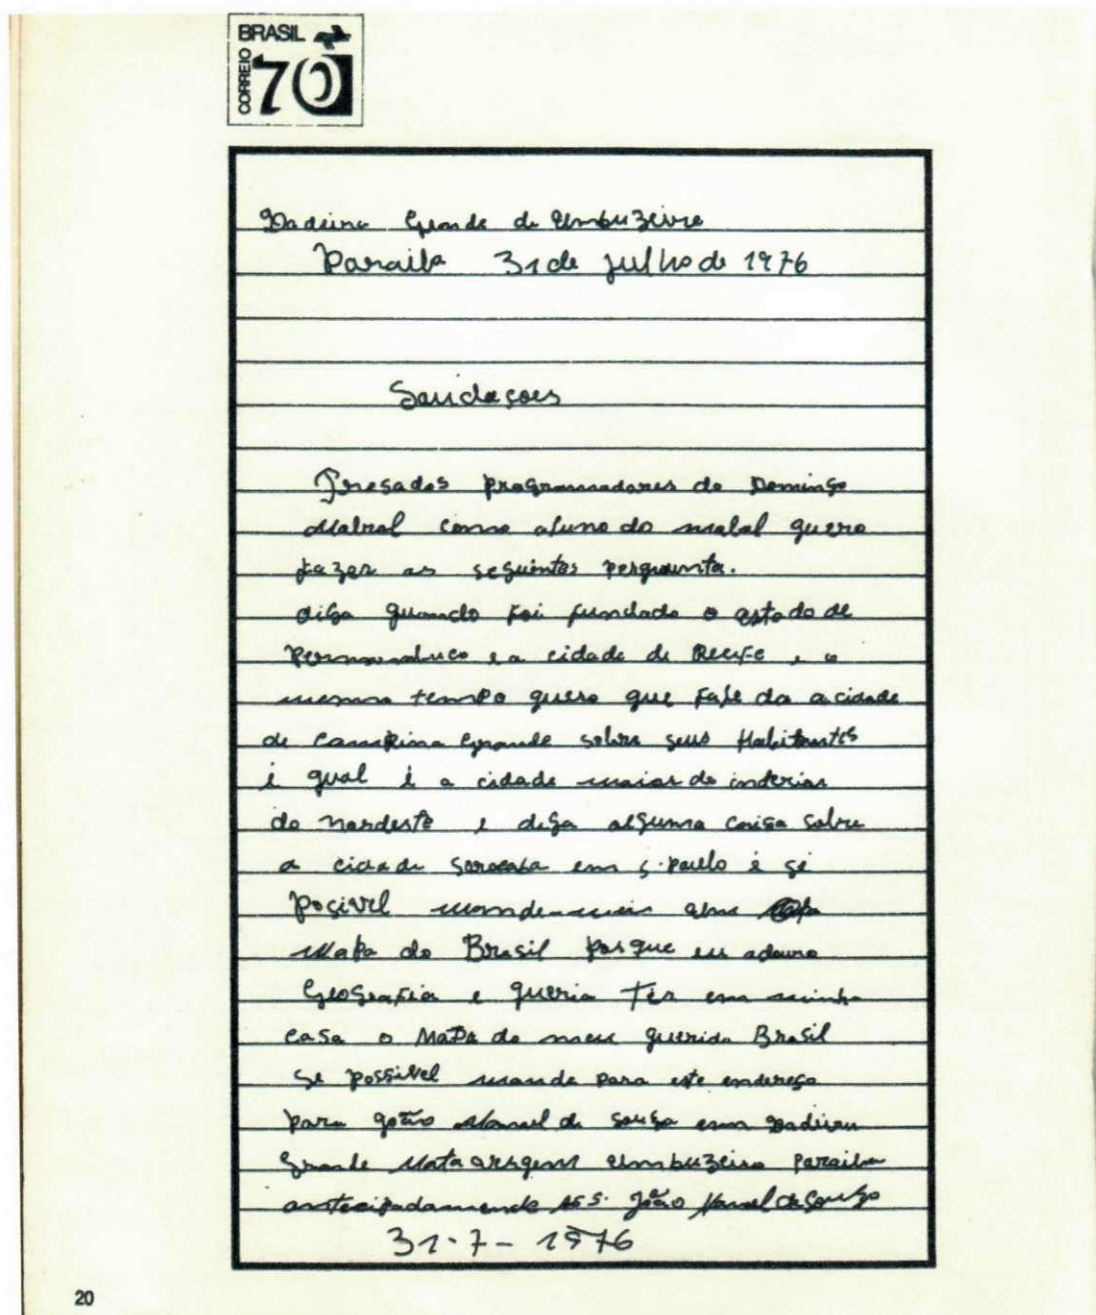 BRASIL
CORREIO
70
Grande de Umbuzeiro
Paraiba 31 de julho de 1976
Saudaçoes
Presados programadores do Domingo
Mobral como aluno do mobral quero
fazer as seguintes pergunta.
diga quando foi fundado o estado de
Pernambuco e a cidade de Recife e o
mesmo tempo quero que fale da a cidade
de Campina Grande sobre seus Habitantes
i qual é a cidade maior do interior
do nordeste e diga alguma coisa sobre
a cidade Sorocaba em S. Paulo é si
posivel mande-mim um
Mapa do Brasil porque eu adouro
Geografia e queria Ter em minha
casa o Mapa do meu querido Brasil
se possivel mande para este endereço
para João Manuel de Souza em
Grande Mata virgem Umbuzeiro Paraiba
antecipadamende ASS. João Manuel de Souza
31-7-1976
20